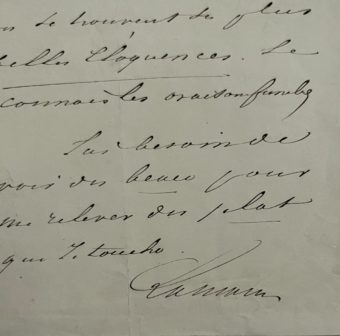 se trouvent des plus
belles Éloquences. Le
connais les oraison funèb
besoin de
vois du beau pour
me relever du plat
que Je touche.